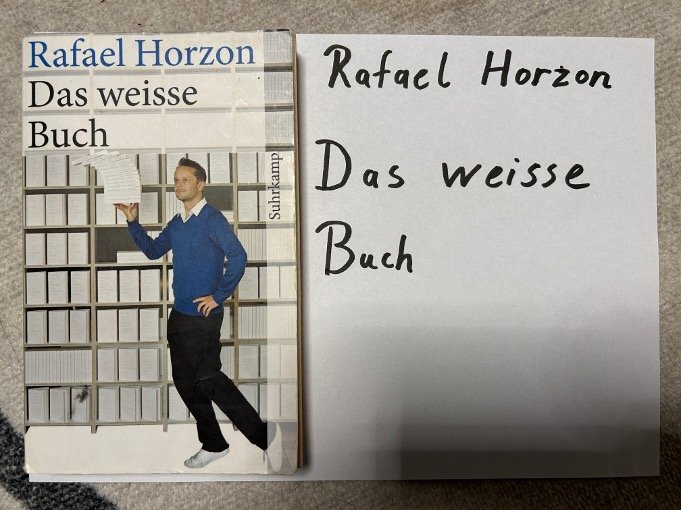 Rafael Horzon
Das weisse
Buch
Suhrkamp
Rafael Horzon
Das weisse
Buch